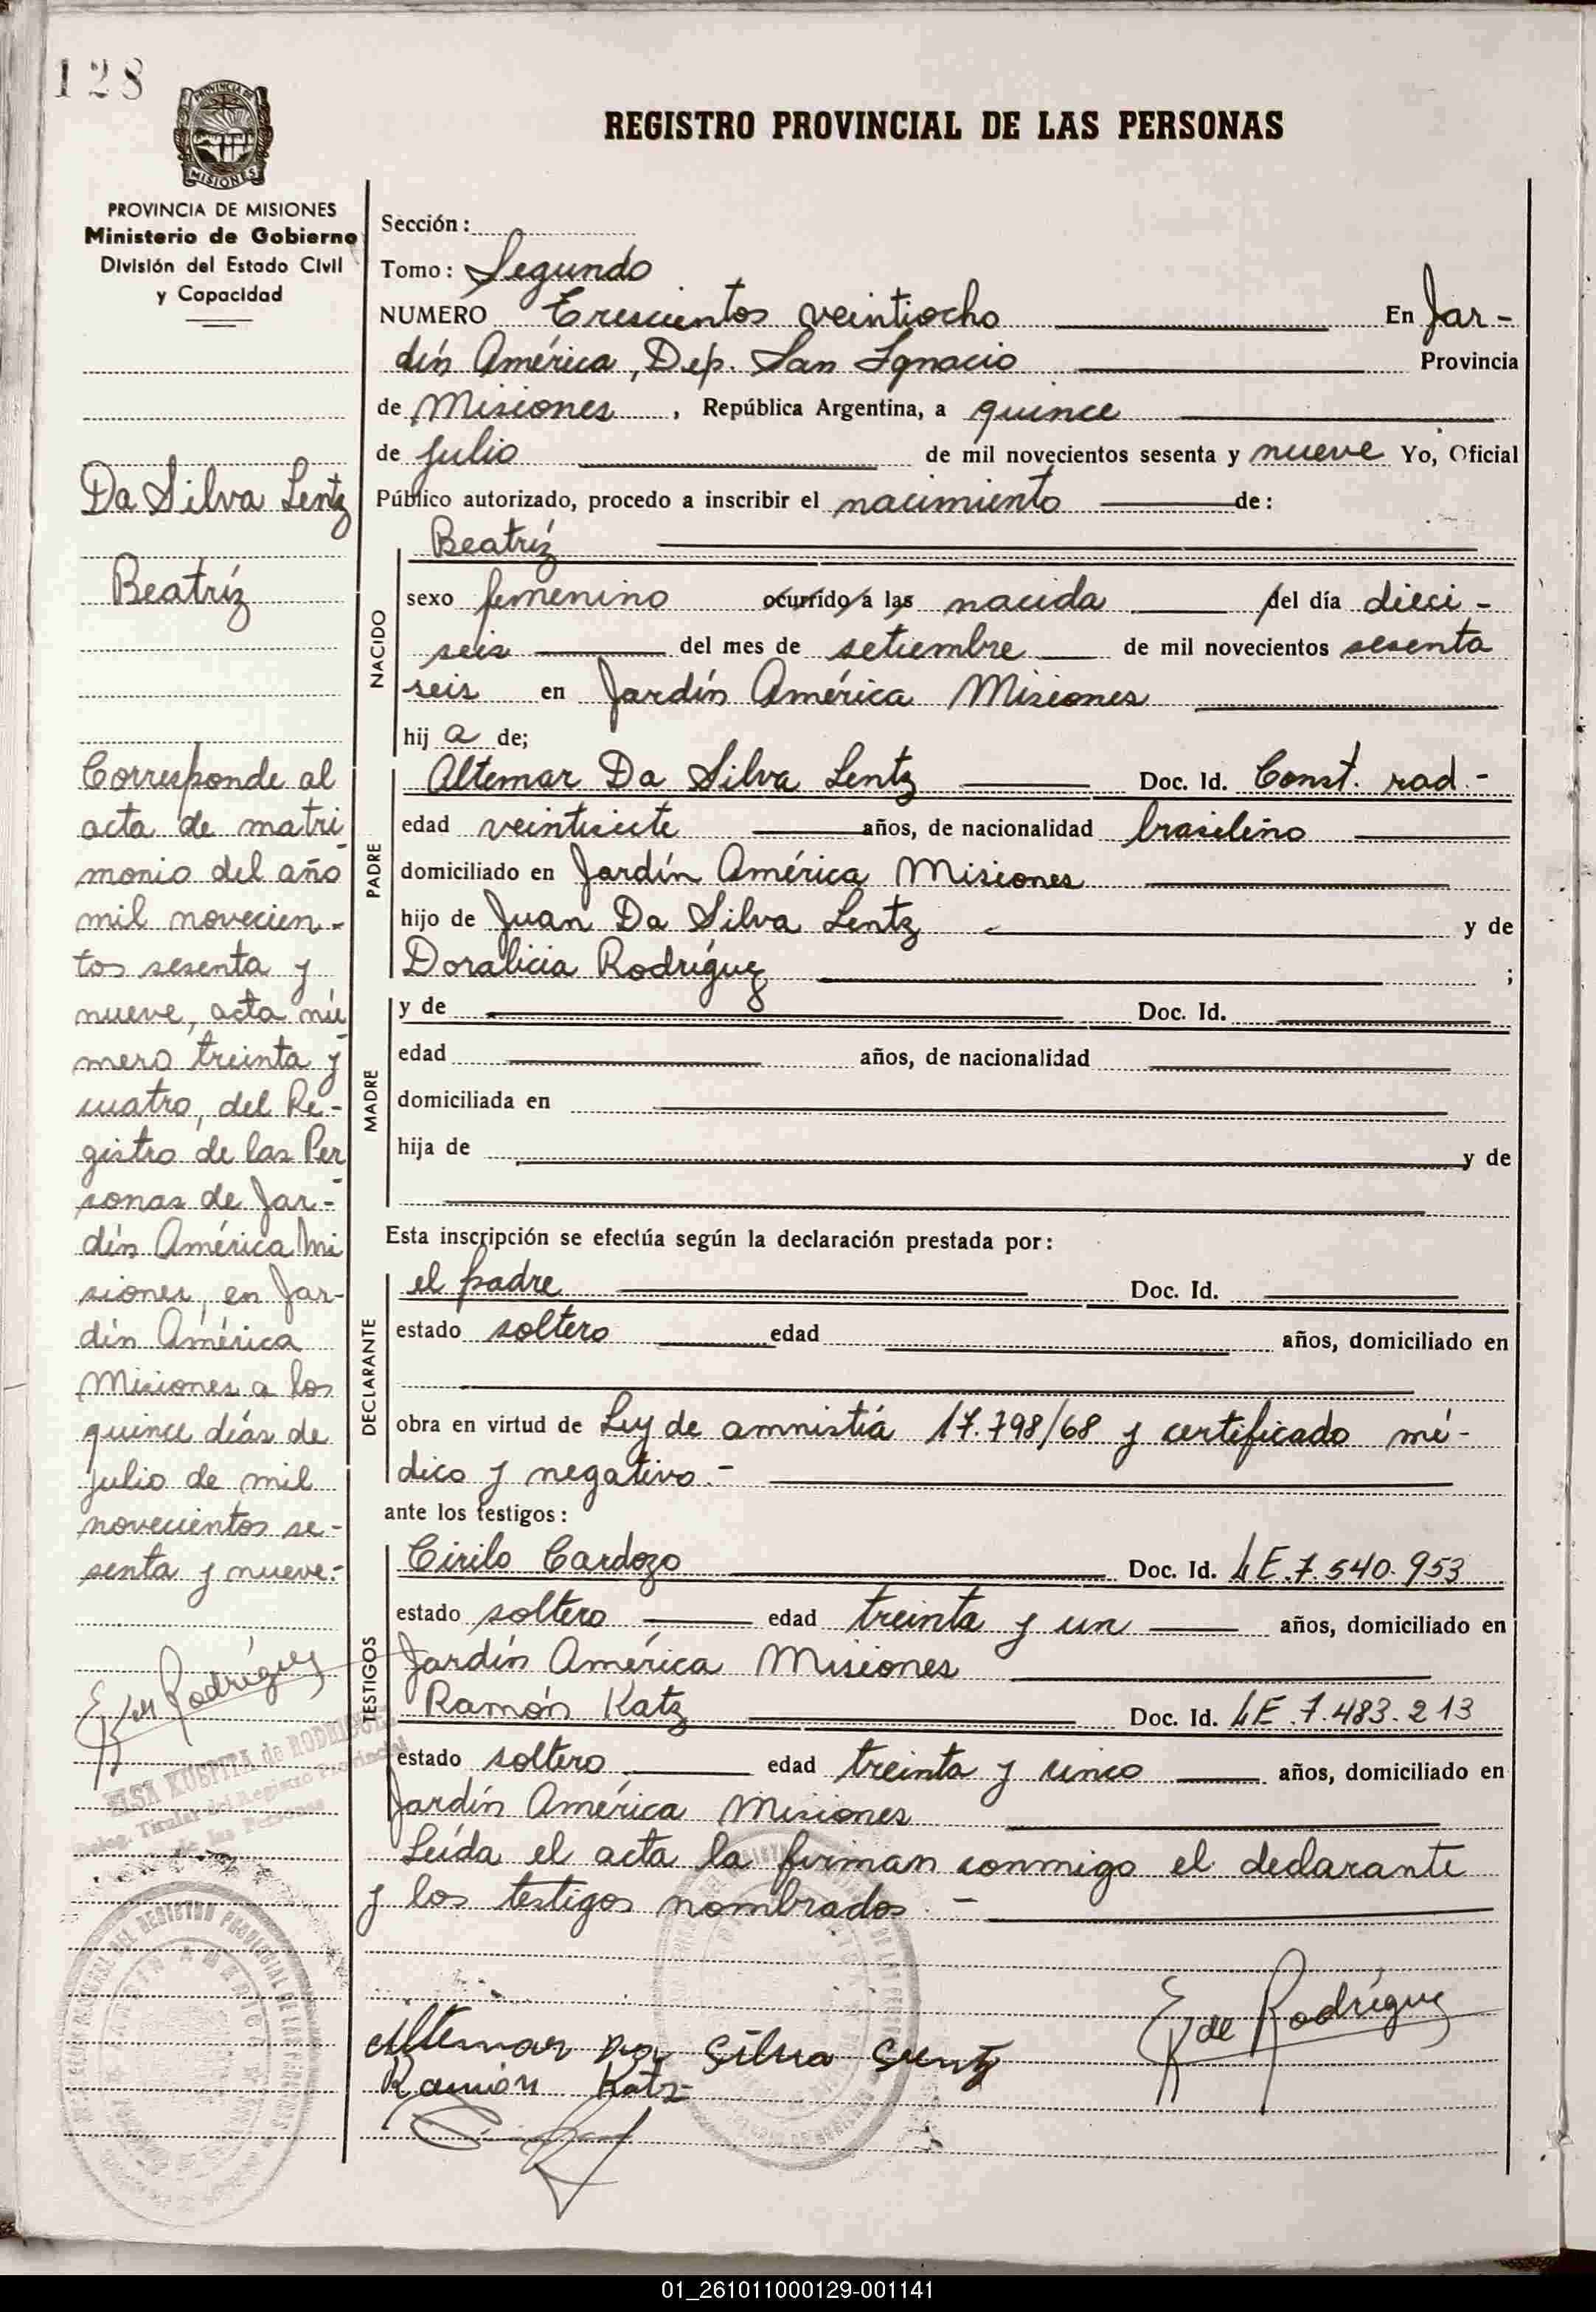 128
PROVINCIA DE MISIONES
PROVINCIA DE MISIONES
Ministerio de Gobierno
División del Estado Civil
y Capacidad
Da Silva Lentz
Beatríz
Corresponde al
acta de matri
monio del año
mil novecien-
tos sesenta y
nueve, acta nú
mero treinta y
cuatro, del Re-
gistro de las Per
sonas de Jar-
dín América Mi
siones, en Jar-
dín América
Misiones a los
quince días de
julio de mil
novecientos se-
senta y nueve.-
E K de Rodríguez
ELSA KUSPITA de RODRIGUEZ
Deleg. Titular del Registro Provincial
de las Personas
REGISTRO PROVINCIAL DE LAS PERSONAS
Sección:
Tomo: Segundo
NUMERO Trescientos veintiocho En Jar-
dín América, Dep. San Ignacio Provincia
de Misiones, República Argentina, a quince
de julio de mil novecientos sesenta y nueve Yo, Oficial
Público autorizado, procedo a inscribir el nacimiento de:
NACIDO
Beatríz
sexo femenino ocurrido a las nacida del día dieci-
seis del mes de setiembre de mil novecientos sesenta
seis en Jardín América Misiones
hij a de;
PADRE
Altemar Da Silva Lentz Doc. Id. Const. rad.-
edad veintisiete años, de nacionalidad brasileño
domiciliado en Jardín América Misiones
hijo de Juan Da Silva Lentz y de
Doralicia Rodríguez ;
MADRE
y de Doc. Id.
edad años, de nacionalidad
domiciliada en
hija de y de
Esta inscripción se efectúa según la declaración prestada por:
DECLARANTE
el padre Doc. Id.
estado soltero edad años, domiciliado en
obra en virtud de Ley de amnistía 17.798/68 y certificado mé-
dico y negativo.-
ante los testigos:
TESTIGOS
Cirilo Cardozo Doc. Id. LE.7.540.953
estado soltero edad treinta y un años, domiciliado en
Jardín América Misiones
Ramón Katz Doc. Id. LE.7.483.213
estado soltero edad treinta y cinco años, domiciliado en
Jardín América Misiones
Leída el acta la firman conmigo el declarante
y los testigos nombrados.-
E K de Rodríguez
Altemar Da Silva Lentz
Ramón Katz
01_261011000129-001141